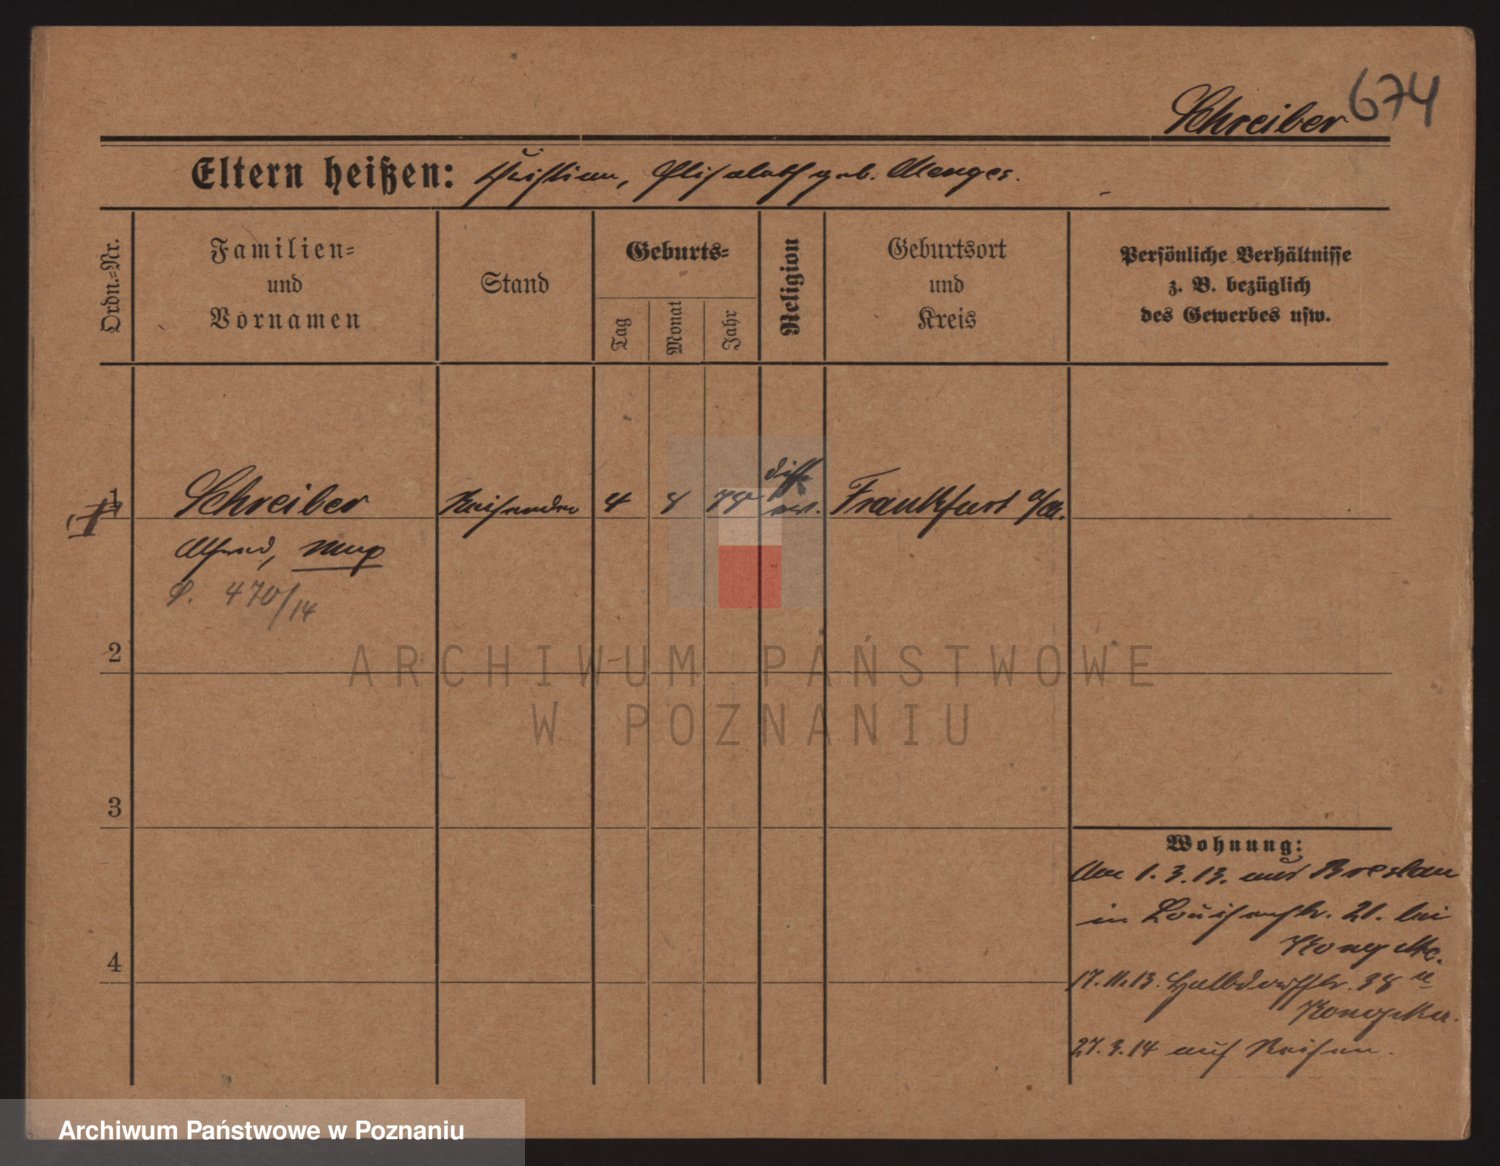 Schreiber 674
Eltern heißen: Christian, Elisabeth geb. Menges.
Ordn.-Nr.
Familien-
und
Vornamen
Stand
Geburts-
Tag
Monat
Jahr
Religion
Geburtsort
und
Kreis
Persönliche Verhältnisse
z. B. bezüglich
des Gewerbes usw.
1
Schreiber Reisender 4 8 78 diss. Frankfurt a/M.
Alfred, Max
P. 470/14
2
ARCHIWUM PAŃSTWOWE
W POZNANIU
3
4
Wohnung:
Am 1.3.13. aus Breslau
in Louisenstr. 21. bei
17.11.13. Halbdorfstr. 38
27.3.14 auf Reisen.
Archiwum Państwowe w Poznaniu